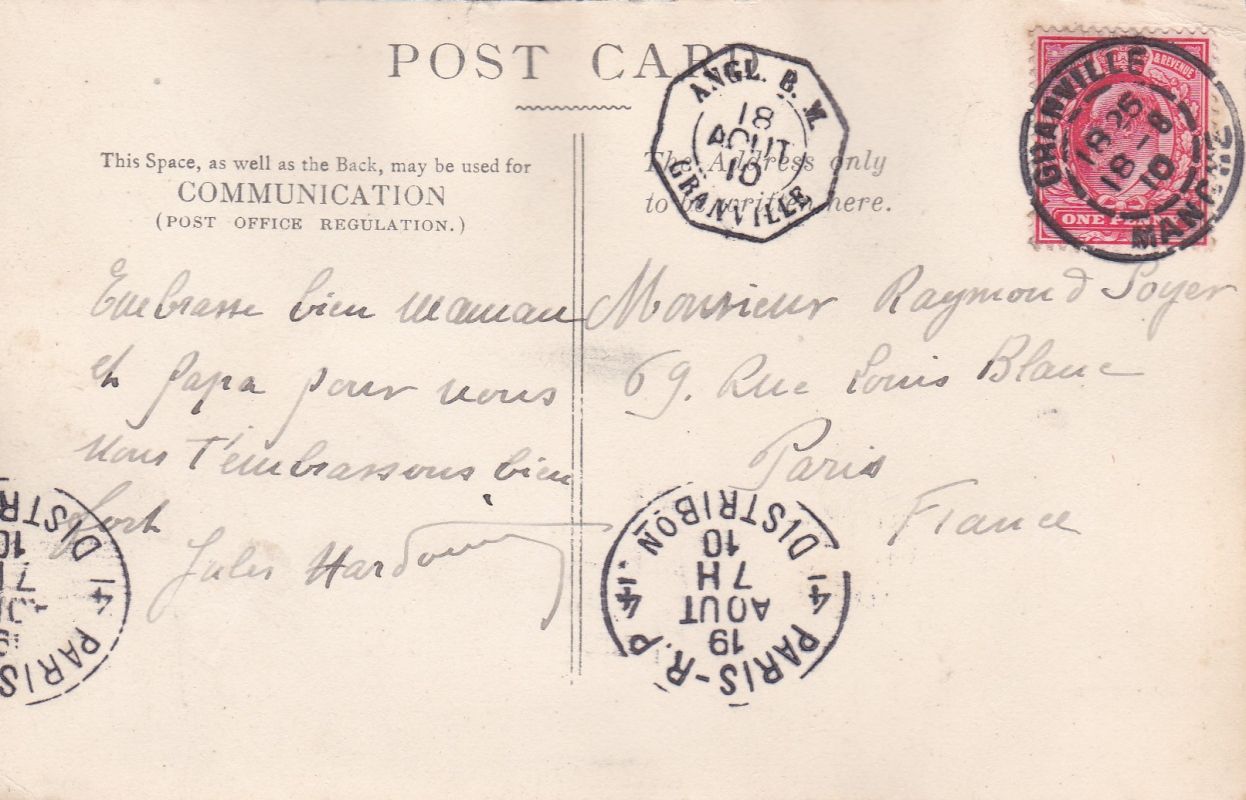 POST CARD
This Space, as well as the Back, may be used for
COMMUNICATION
(POST OFFICE REGULATION.)
The Address only
to be written here.
ANGL. B. M.
18
AOUT
10
GRANVILLE
& REVENUE
ONE PENNY
GRANVILLE
18 25
18 - 8
10
MANCHE
Embrasse bien maman
et papa pour nous
Nous t'embrassons bien
fort
Jules Hardouin
Monsieur Raymond Soyer
69. Rue Louis Blanc
Paris
France
PARIS-R.P
19
AOUT
7H
10
DISTRIBON
PARIS
DISTR
10